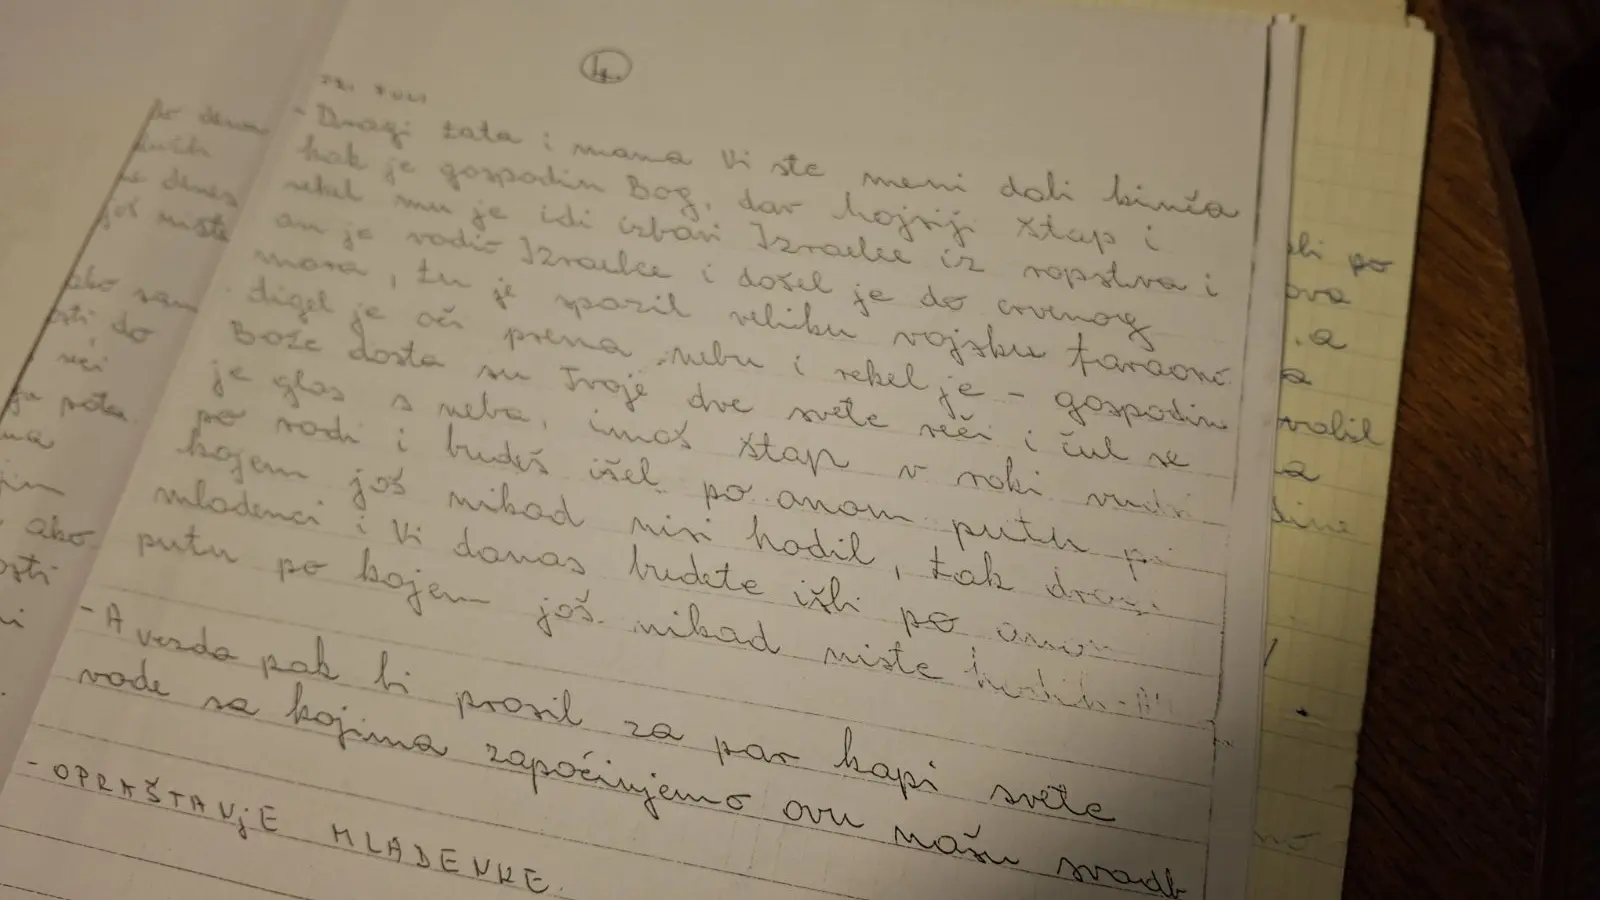 4.
- Dragi tata i mama Vi ste meni dali binča
kak je gospodin Bog, dar hojsiji štap i
rekel mu je idi izbavi Izraelce iz ropstva i
an je vodio Izraelce i došel je do crvenog
mora, tu je spazil veliku vojsku faraona
digel je oči prema nebu i rekel je - gospodin
Bože dosta su Tvoje dve svete reči i čul se
je glas s neba, imaš štap v roki vudri
po vodi i budeš išel po anom putu po
kojem još nikad nisi hodil, tak dragi
mladenci i Vi danas budete išli po anom
putu po kojem još nikad niste hodili -
- A vezda pak bi prosil za par kapi svete
vode sa kojima započinjemo ovu našu svadb
- OPRAŠTAVjE MLADENKE.
po dena
denes
još niste
ako sam
osti do
reči
puta
ma
ako
osti
ni
li po
ova
. a
a
vratil
a
dine
no